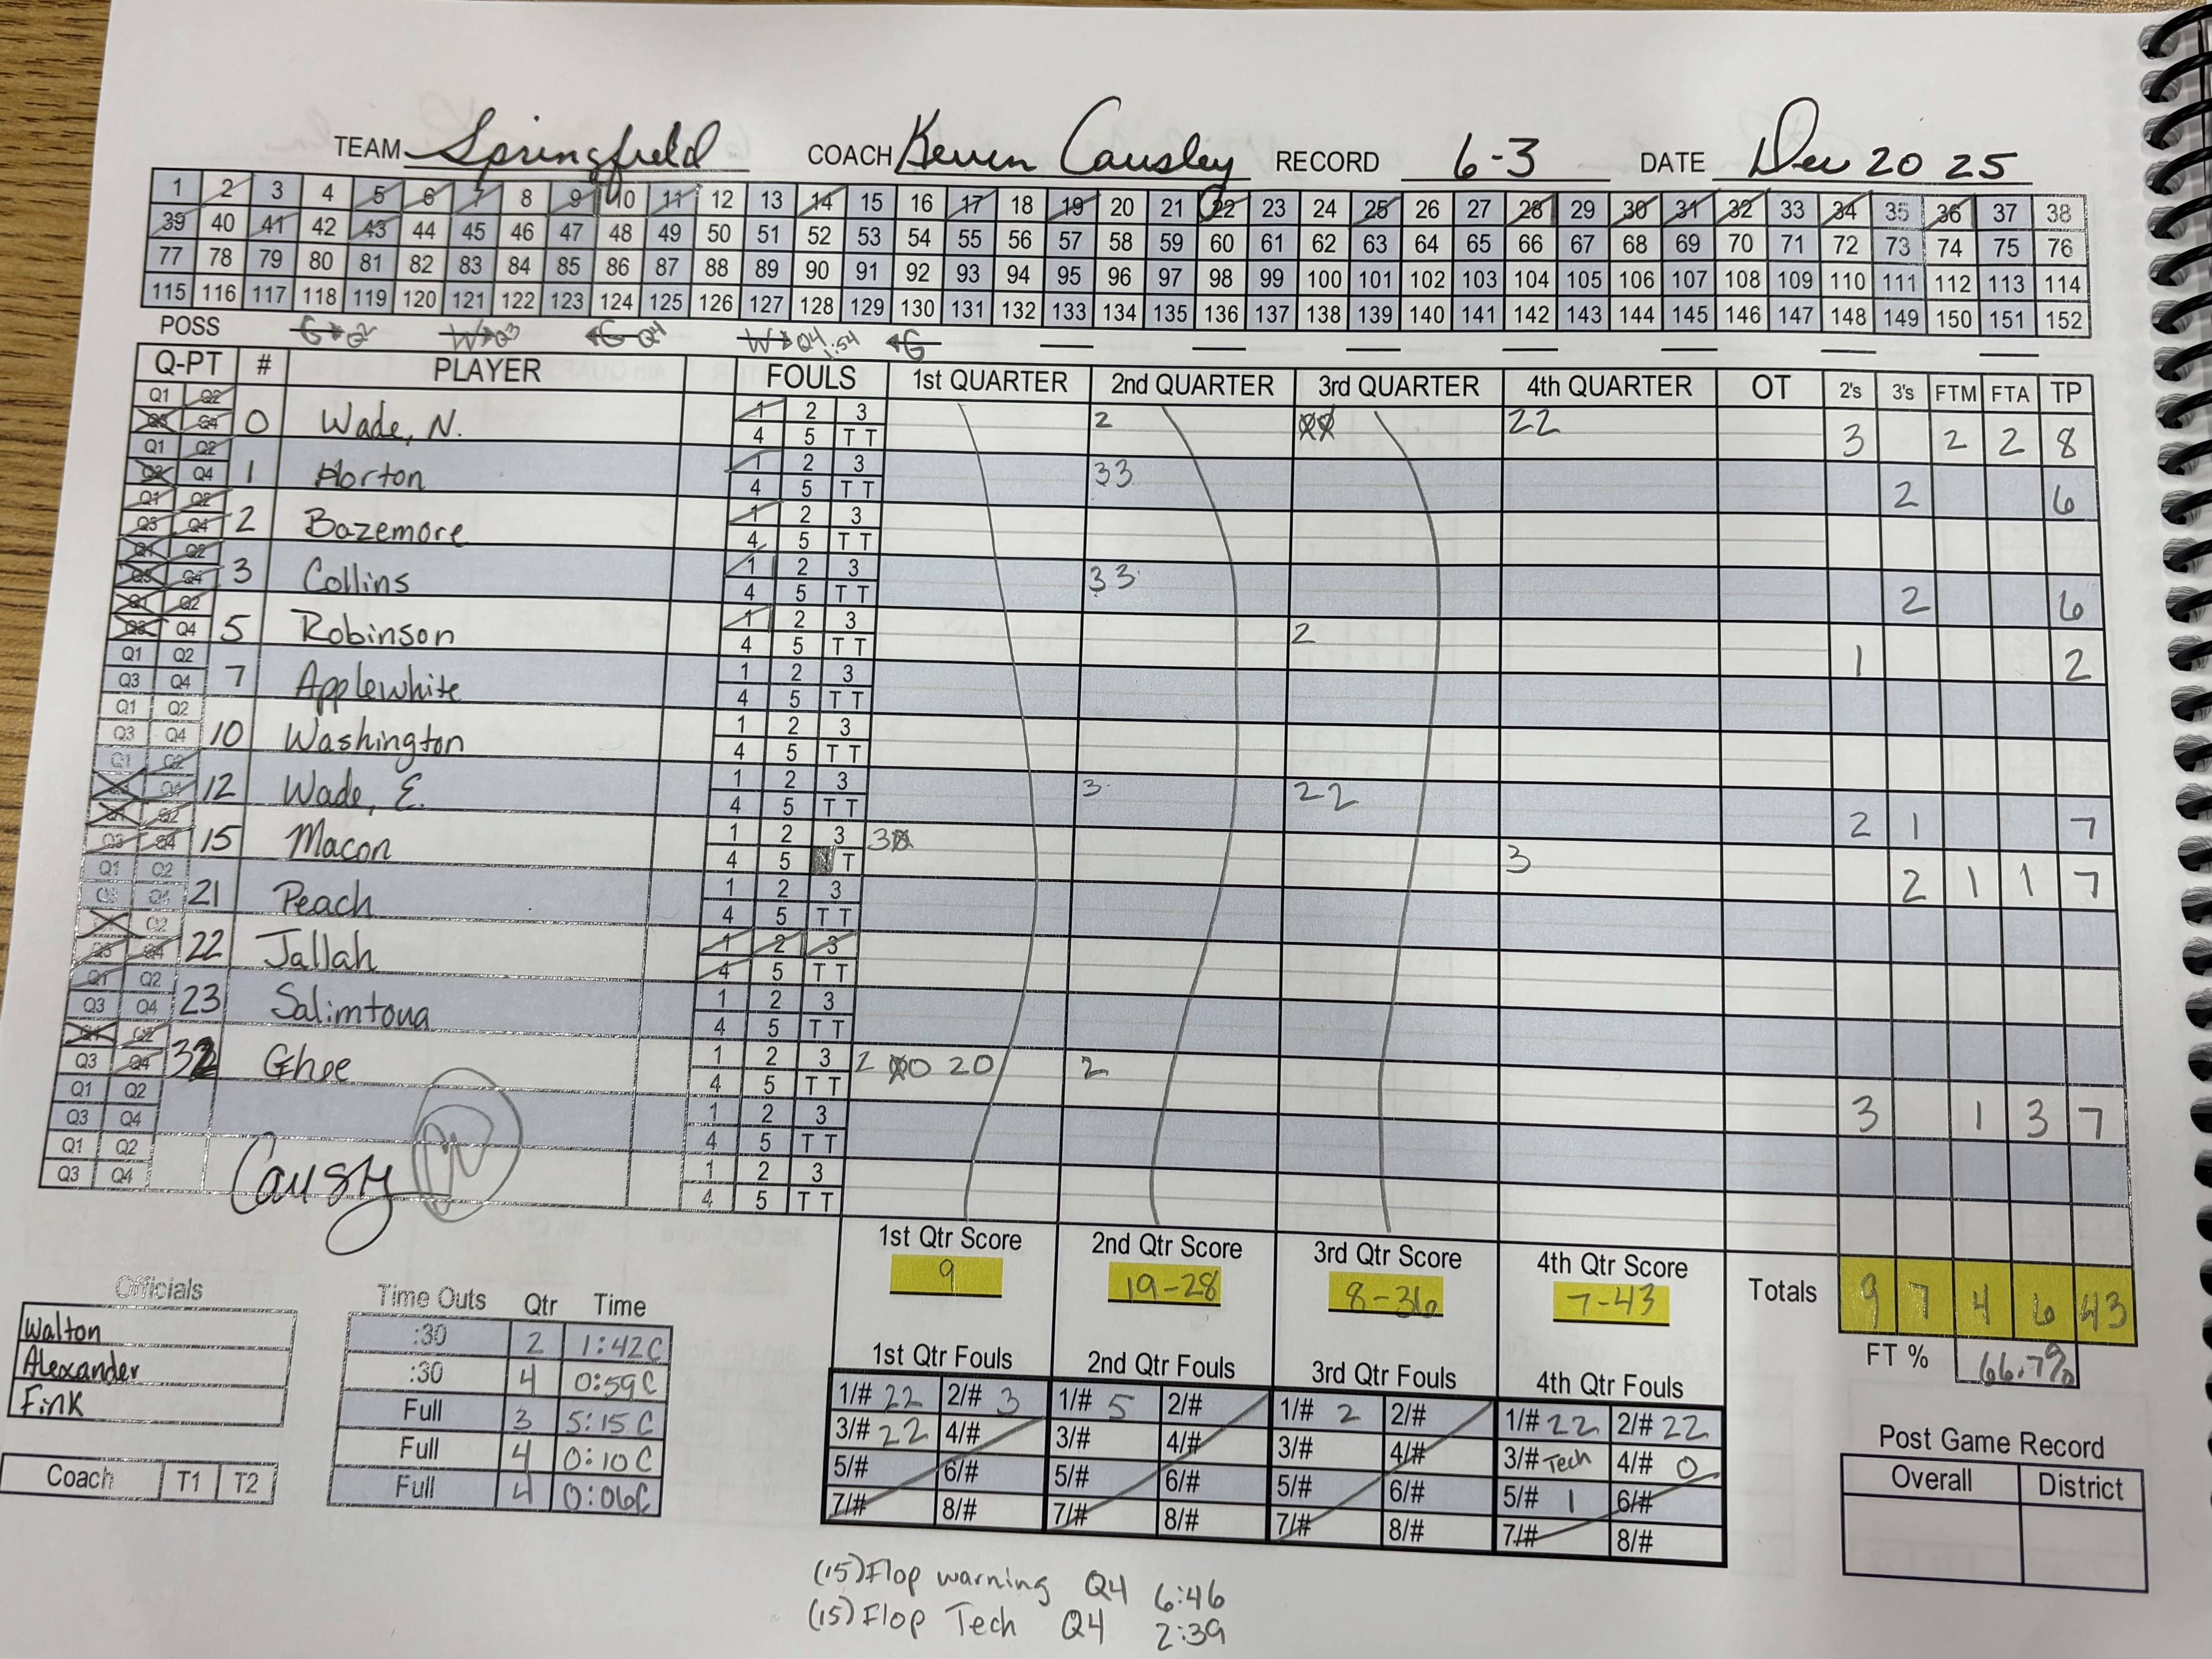 TEAM Springfield COACH Keven Causley RECORD 6-3 DATE Dec 20 25
1 2 3 4 5 6 7 8 9 10 11 12 13 14 15 16 17 18 19 20 21 22 23 24 25 26 27 28 29 30 31 32 33 34 35 36 37 38
39 40 41 42 43 44 45 46 47 48 49 50 51 52 53 54 55 56 57 58 59 60 61 62 63 64 65 66 67 68 69 70 71 72 73 74 75 76
77 78 79 80 81 82 83 84 85 86 87 88 89 90 91 92 93 94 95 96 97 98 99 100 101 102 103 104 105 106 107 108 109 110 111 112 113 114
115 116 117 118 119 120 121 122 123 124 125 126 127 128 129 130 131 132 133 134 135 136 137 138 139 140 141 142 143 144 145 146 147 148 149 150 151 152
POSS G→Q2 W→Q3 ←G Q4 W→Q4 1:54 ←G
Q-PT # PLAYER FOULS 1st QUARTER 2nd QUARTER 3rd QUARTER 4th QUARTER OT 2's 3's FTM FTA TP
Q1 Q2 1 2 3
Q3 Q4 0 Wade, N. 4 5 T T 2 22 3 2 2 8
Q1 Q2 1 2 3
Q3 Q4 1 Horton 4 5 T T 33 2 6
Q1 Q2 1 2 3
Q3 Q4 2 Bazemore 4 5 T T
Q1 Q2 1 2 3
Q3 Q4 3 Collins 4 5 T T 33 2 6
Q1 Q2 1 2 3
Q3 Q4 5 Robinson 4 5 T T 2 1 2
Q1 Q2 1 2 3
Q3 Q4 7 Applewhite 4 5 T T
Q1 Q2 1 2 3
Q3 Q4 10 Washington 4 5 T T
Q1 Q2 1 2 3
Q3 Q4 12 Wade, E. 4 5 T T 3 22 2 1 7
Q1 Q2 1 2 3
Q3 Q4 15 Macon 4 5 T 3 3 2 1 1 7
Q1 Q2 1 2 3
Q3 Q4 21 Peach 4 5 T T
Q1 Q2 1 2 3
Q3 Q4 22 Jallah 4 5 T T
Q1 Q2 1 2 3
Q3 Q4 23 Salimtoua 4 5 T T
Q1 Q2 1 2 3
Q3 Q4 32 Ghee 4 5 T T 2 0 20 2 3 1 3 7
Q1 Q2 1 2 3
Q3 Q4 4 5 T T
Q1 Q2 1 2 3
Q3 Q4 4 5 T T
Causly
1st Qtr Score 2nd Qtr Score 3rd Qtr Score 4th Qtr Score
9 19-28 8-36 7-43 Totals 9 7 4 6 43
FT % 66.7%
Officials
Walton
Alexander
Fink
Coach T1 T2
Time Outs Qtr Time
:30 2 1:42C
:30 4 0:59C
Full 3 5:15C
Full 4 0:10C
Full 4 0:06C
1st Qtr Fouls 2nd Qtr Fouls 3rd Qtr Fouls 4th Qtr Fouls
1/# 22 2/# 3 1/# 5 2/# 1/# 2 2/# 1/# 22 2/# 22
3/# 22 4/# 3/# 4/# 3/# 4/# 3/# Tech 4/# 0
5/# 6/# 5/# 6/# 5/# 6/# 5/# 1 6/#
7/# 8/# 7/# 8/# 7/# 8/# 7/# 8/#
Post Game Record
Overall District
(15) Flop warning Q4 6:46
(15) Flop Tech Q4 2:39